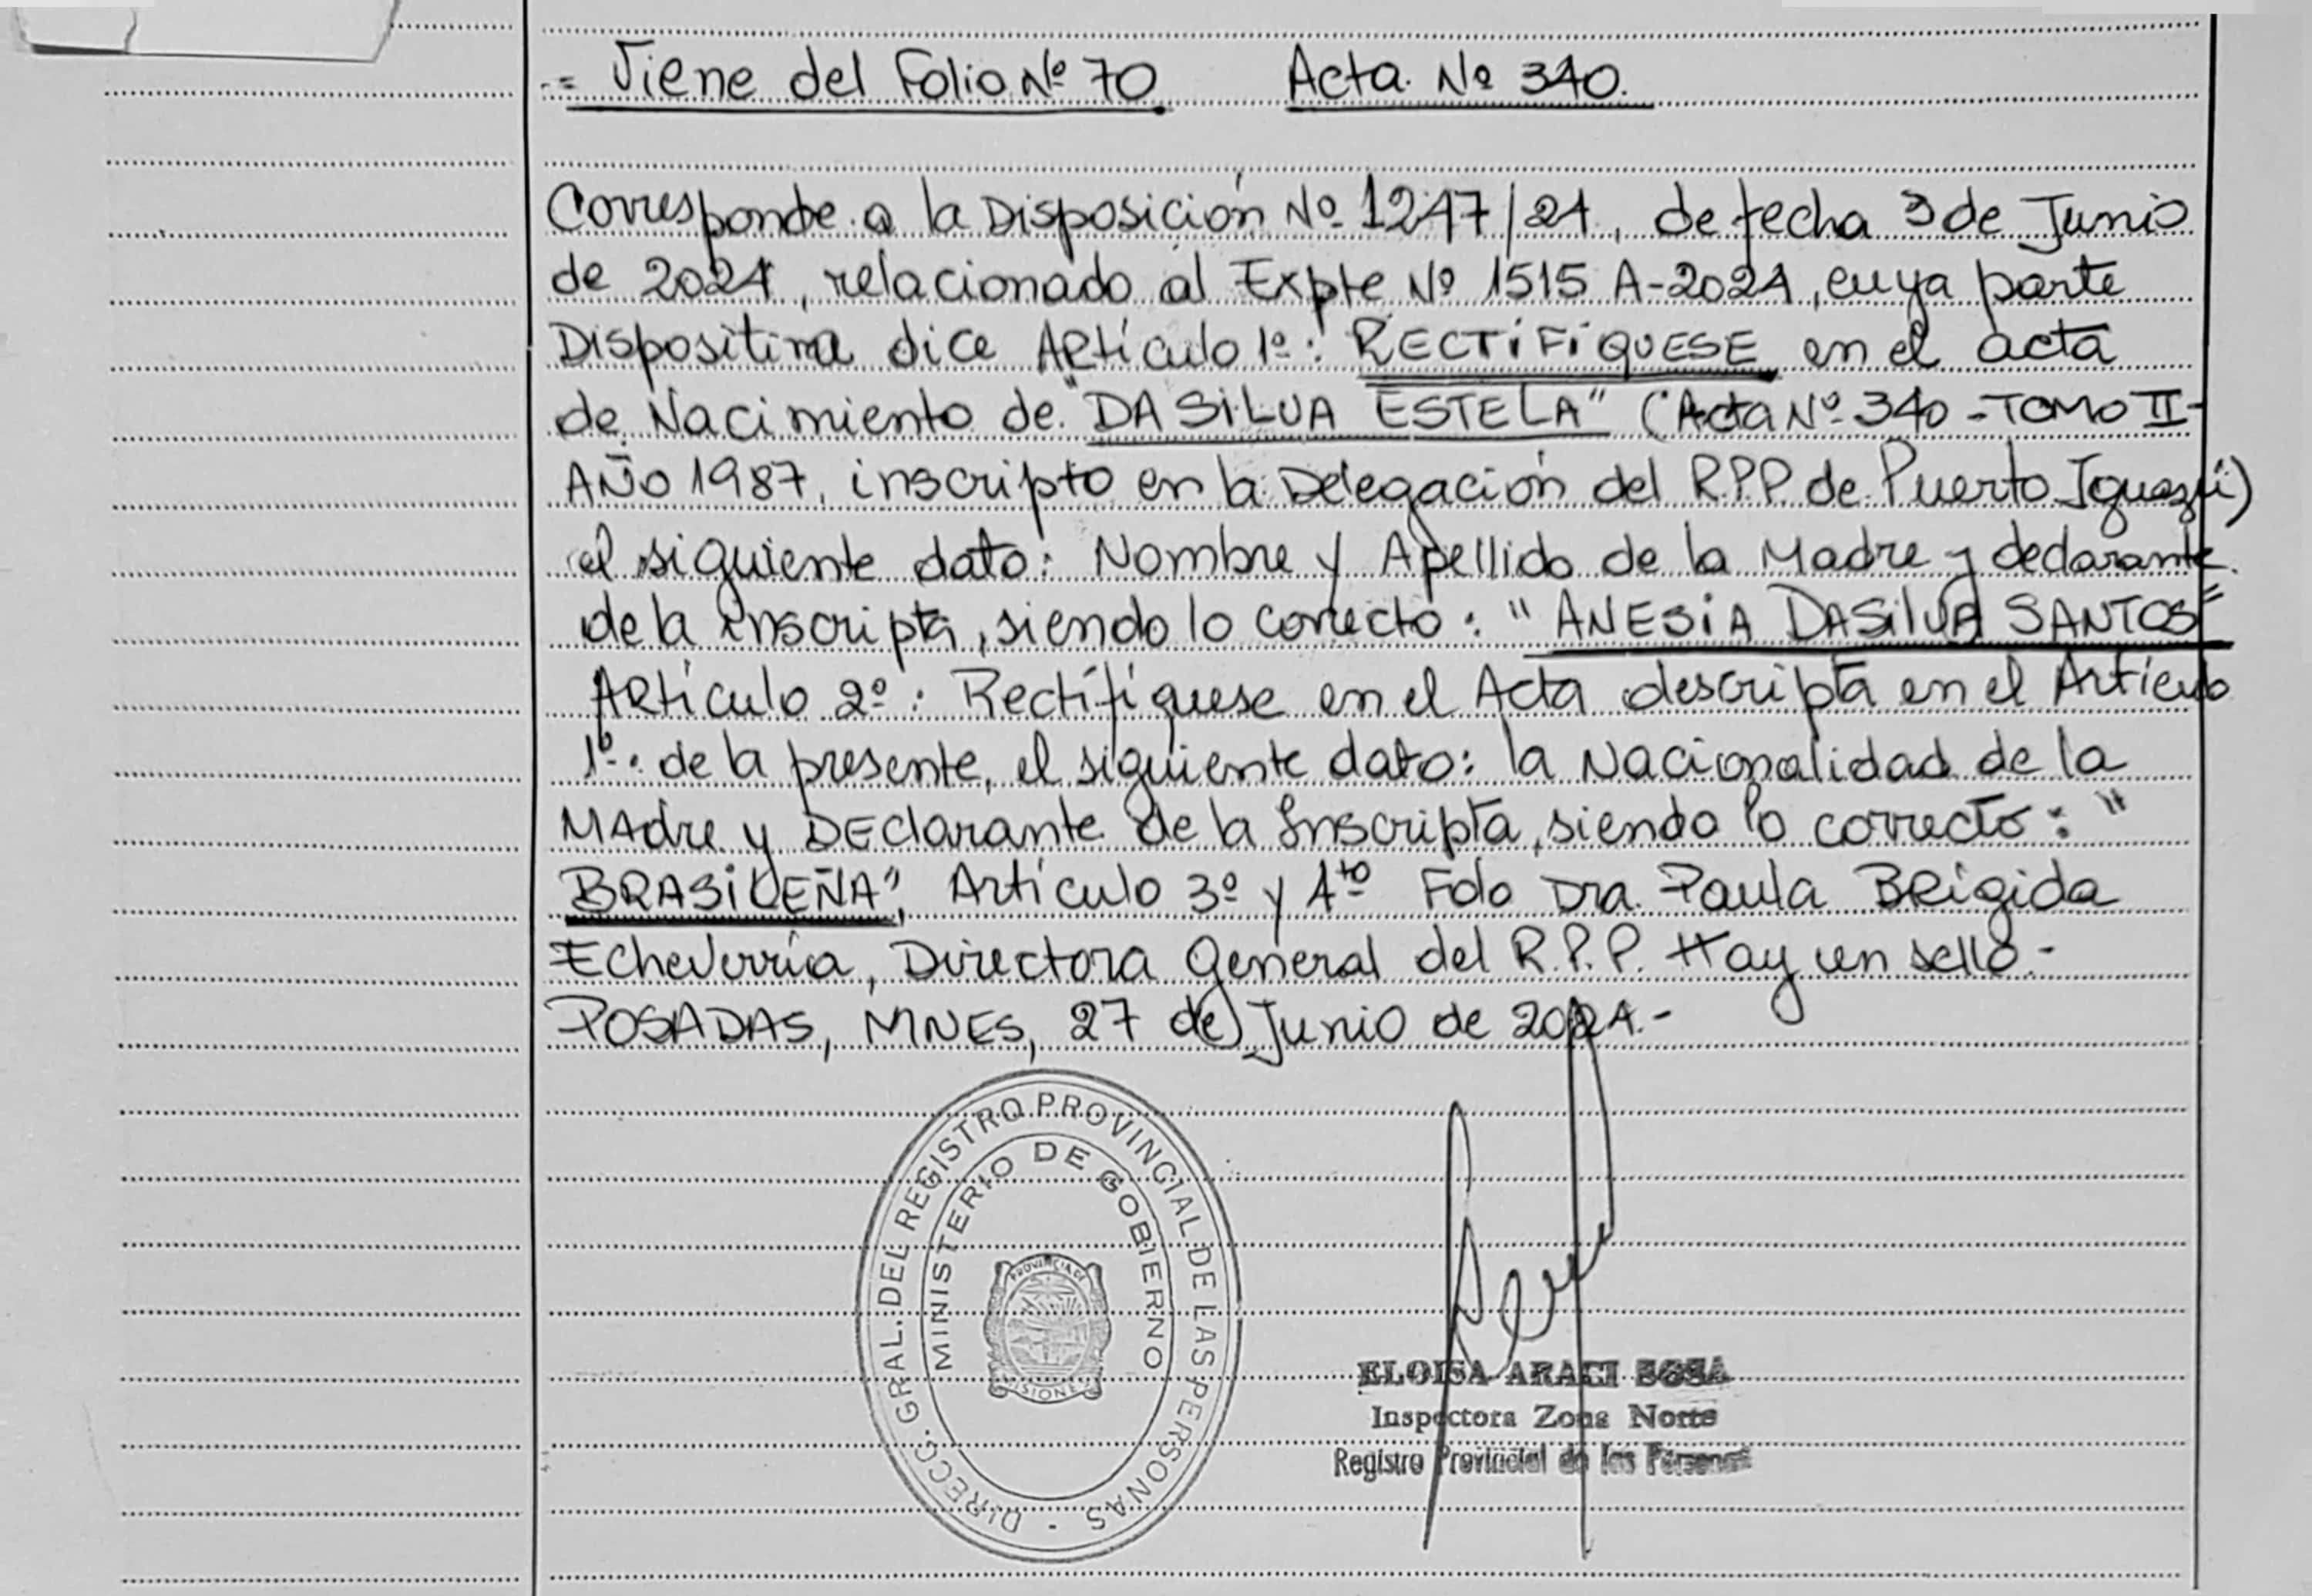 -= Viene del Folio Nº 70. Acta Nº 340.
Corresponde a la Disposición Nº 1247/24, de fecha 3 de Junio
de 2024, relacionado al Expte Nº 1515 A-2024, cuya parte
Dispositiva dice Artículo 1º: RECTIFÍQUESE en el acta
de Nacimiento de "DASILVA ESTELA" (Acta Nº 340 - TOMO II -
AÑO 1987, inscripto en la Delegación del R.P.P de Puerto Iguazú)
el siguiente dato: Nombre y Apellido de la Madre y declarante
de la inscripta, siendo lo correcto: "ANESIA DASILVA SANTOS"
Artículo 2º: Rectifíquese en el Acta descripta en el Artículo
1º. de la presente, el siguiente dato: la Nacionalidad de la
Madre y Declarante de la Inscripta, siendo lo correcto: "
BRASILEÑA", Artículo 3º y 4to Fdo Dra. Paula Brígida
Echeverría, Directora General del R.P.P. Hay un sello.-
POSADAS, MNES, 27 de Junio de 2024.-
DIRECC. GRAL. DEL REGISTRO PROVINCIAL DE LAS PERSONAS -
MINISTERIO DE GOBIERNO
PROVINCIA DE
MISIONES
ELOISA ARACI SOSA
Inspectora Zona Norte
Registro Provincial de las Personas